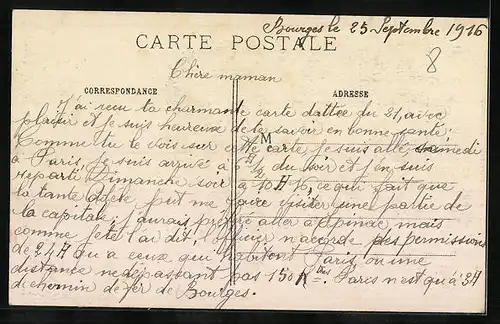 Bourges le 25 Septembre 1916
CARTE POSTALE
8
Chère maman
CORRESPONDANCE
ADRESSE
J'ai reçu ta charmante carte dattée du 21, avec
plaisir et je suis heureux de te savoir en bonne santé.
M
Comme tu le vois sur cette carte je suis allé samedi
à Paris, je suis arrivé à du soir et j'en suis
reparti Dimanche soir à 10H16, ce qui fait que
la tante Odette put me faire visiter une partie de
la capitale, j'aurais préféré aller à Epinac mais
comme je te l'ai dit, l'officier n'accorde des permissions
de 24H qu'a ceux qui habitent Paris, ou une
distance ne dépassant pas 150 Paris n'est qu'à 3H
de chemin de fer de Bourges.